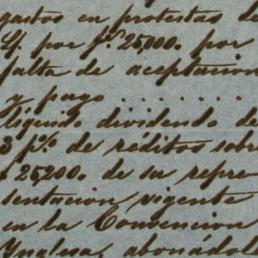 gastos en protestas de
L. por ps. 25000. por
falta de aceptacion
y pago . . . . . . .
Segun dividendo de
3 p% de réditos sobre
25,200. de su repre
sentacion vigente
en la Convencion
Ynglesa, abonádole